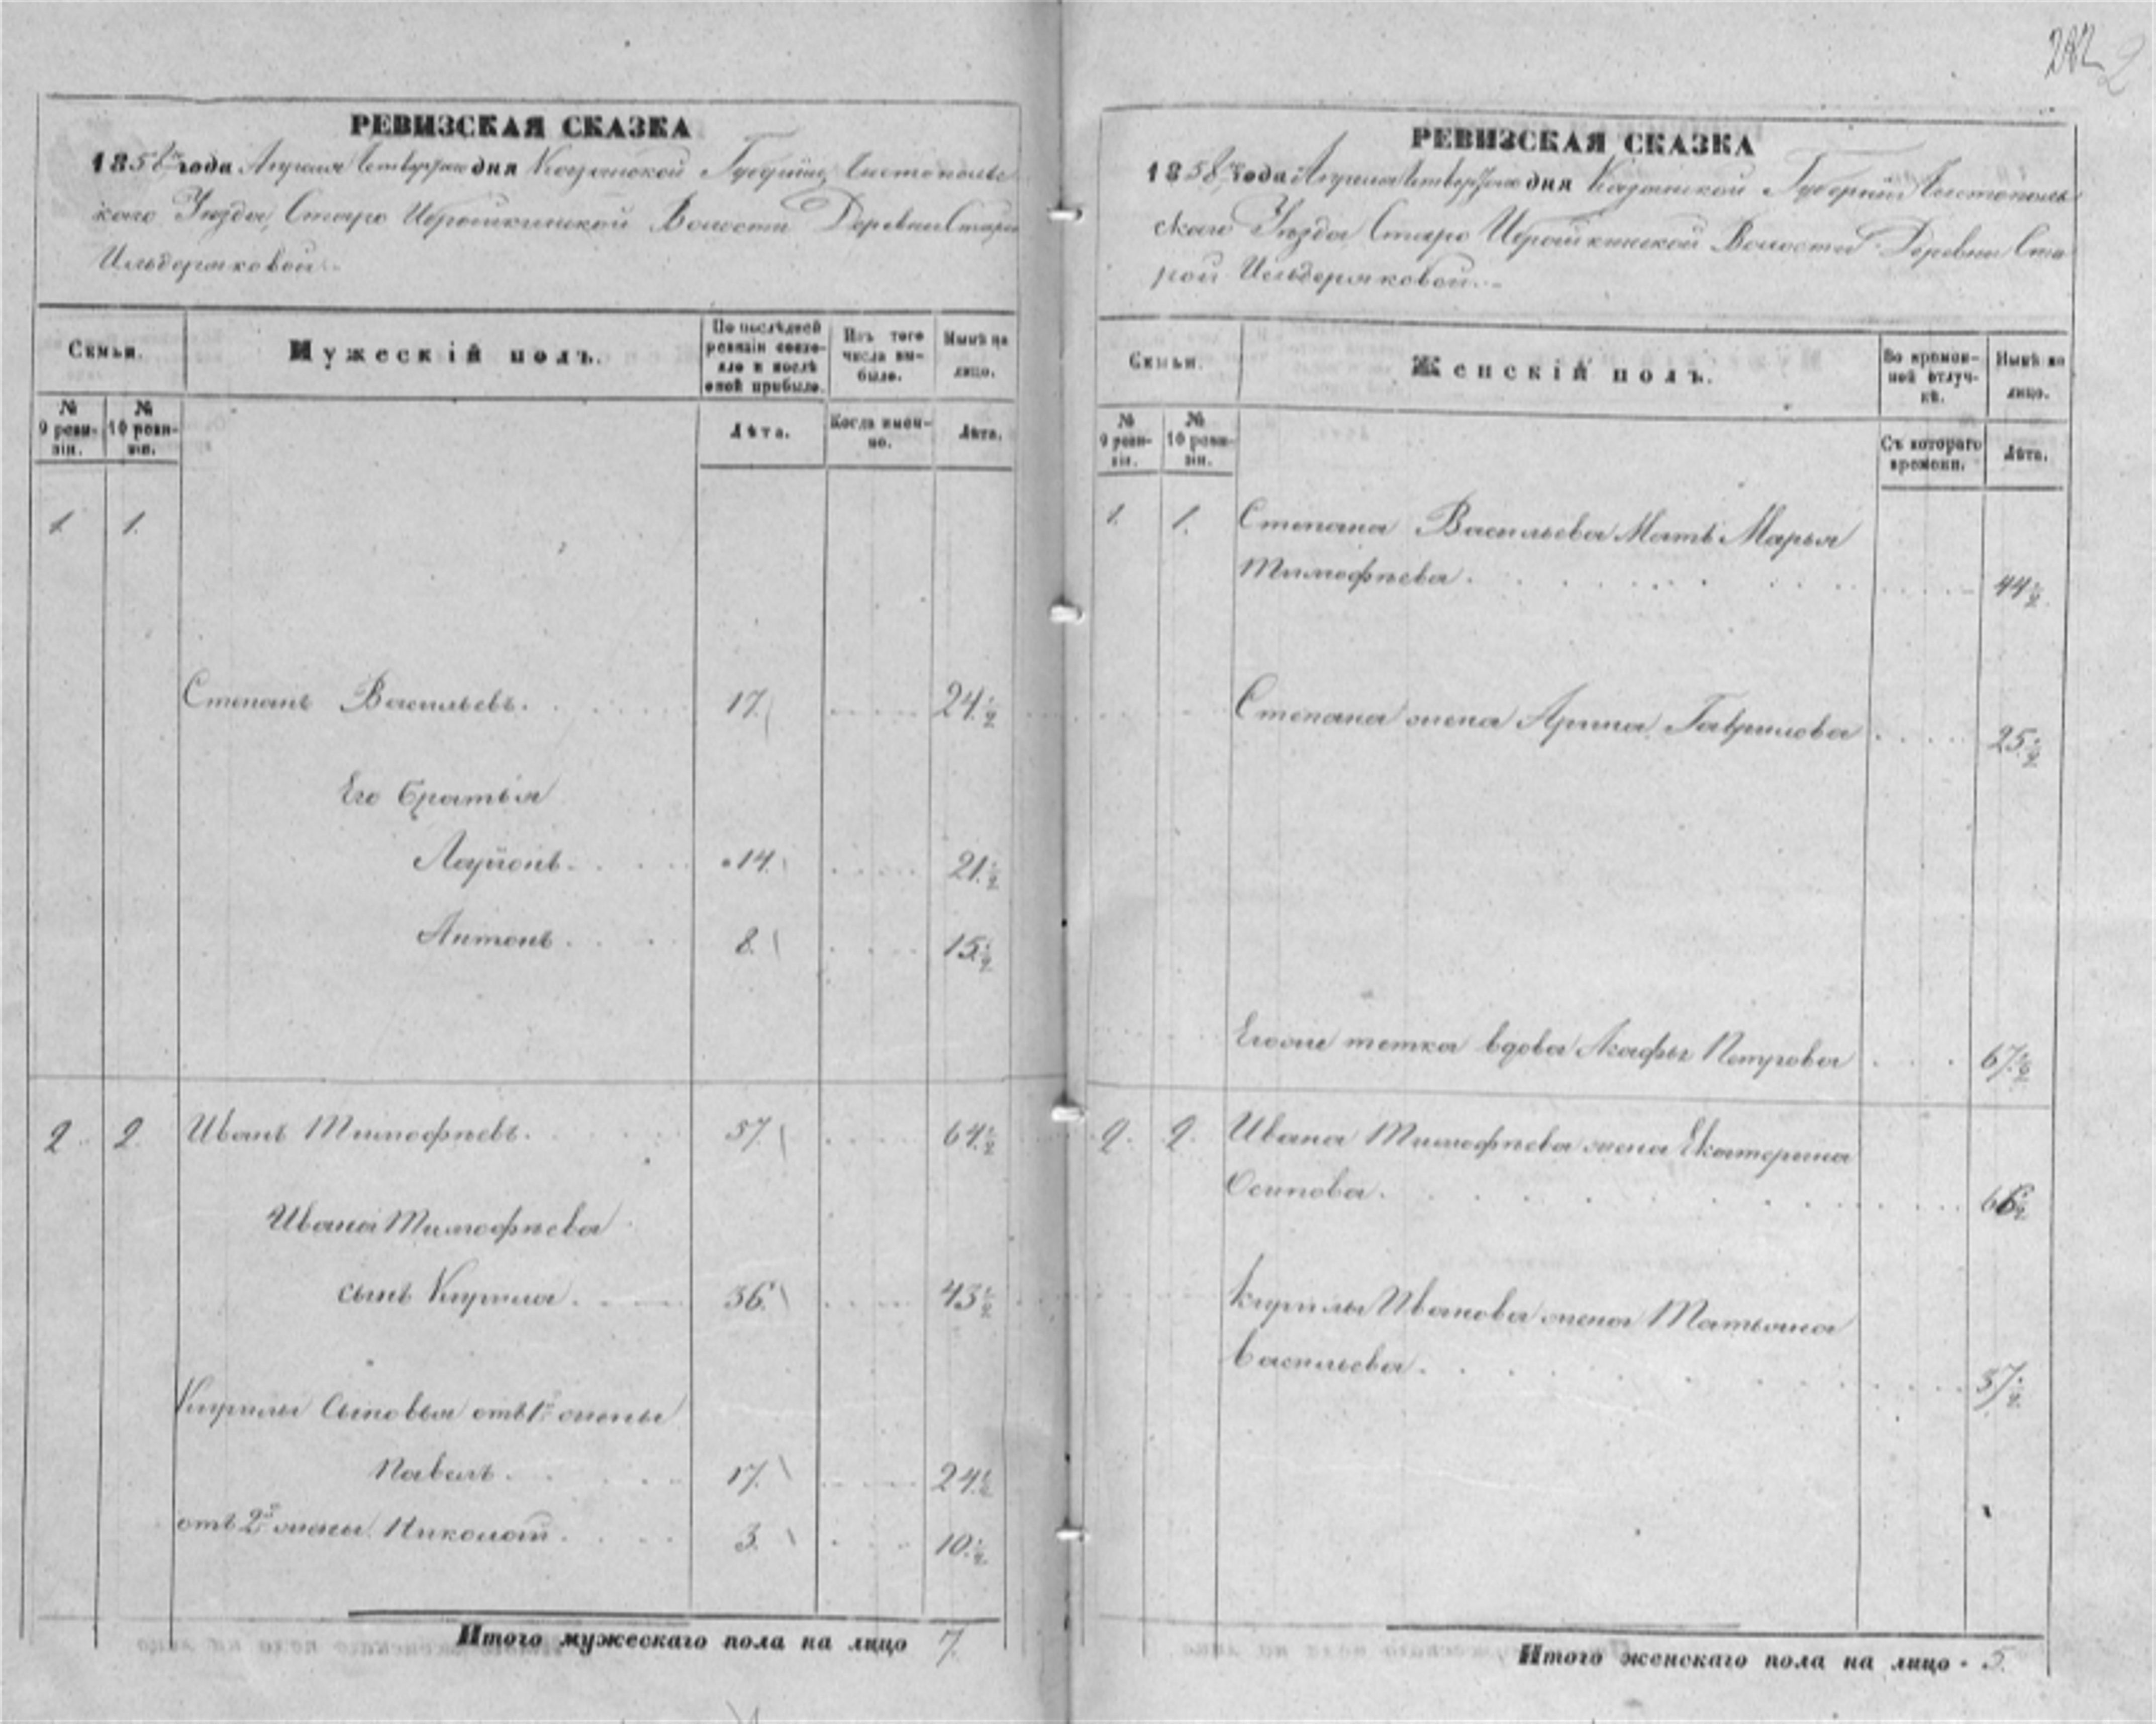 РЕВИЗСКАЯ СКАЗКА
1858 года Апреля дня Казанской Губернiи, Чистополь-
скаго Уѣзда, Старо Ибрайкинской Волости Деревни Старой
Ильдеряковой.
Семьи.
Мужескiй полъ.
По послѣдней ревизiи состояло и послѣ оной прибыло.
Изъ того числа выбыло.
Нынѣ на лицо.
№ 9 ревизiи.
№ 10 ревизiи.
Лѣта.
Когда именно.
Лѣта.
1. 1.
Степанъ Васильевъ. 17. 24 1/2
Его братья
Ларiонъ. 14. 21 1/2
Антонъ. 8. 15 1/2
2. 2. Иванъ Тимофѣевъ. 57. 64 1/2
Ивана Тимофѣева
сынъ Кирила. 36. 43 1/2
Кирилы Сыновья отъ 1й жены
Павелъ. 17. 24 1/2
отъ 2й жены Николай. 3. 10 1/2
Итого мужескаго пола на лицо 7.
РЕВИЗСКАЯ СКАЗКА
1858 года Апреля дня Казанской Губернiи Чистополь-
скаго Уѣзда Старо Ибрайкинской Волости Деревни Ста-
рой Ильдеряковой.
Семьи.
Женскiй полъ.
Во временной отлучкѣ.
Нынѣ на лицо.
№ 9 ревизiи.
№ 10 ревизiи.
Съ котораго времени.
Лѣта.
1. 1. Степана Васильева Мать Марья
Тимофѣева. 44 1/2
Степана жена Арина Гаврилова 25 1/2
Егоже тетка вдова Петрова 67 1/2
2. 2. Ивана Тимофѣева жена Екатерина
Осипова. 66 1/2
Кирилы Иванова жена Татьяна
Васильева. 37 1/2
Итого женскаго пола на лицо 5.